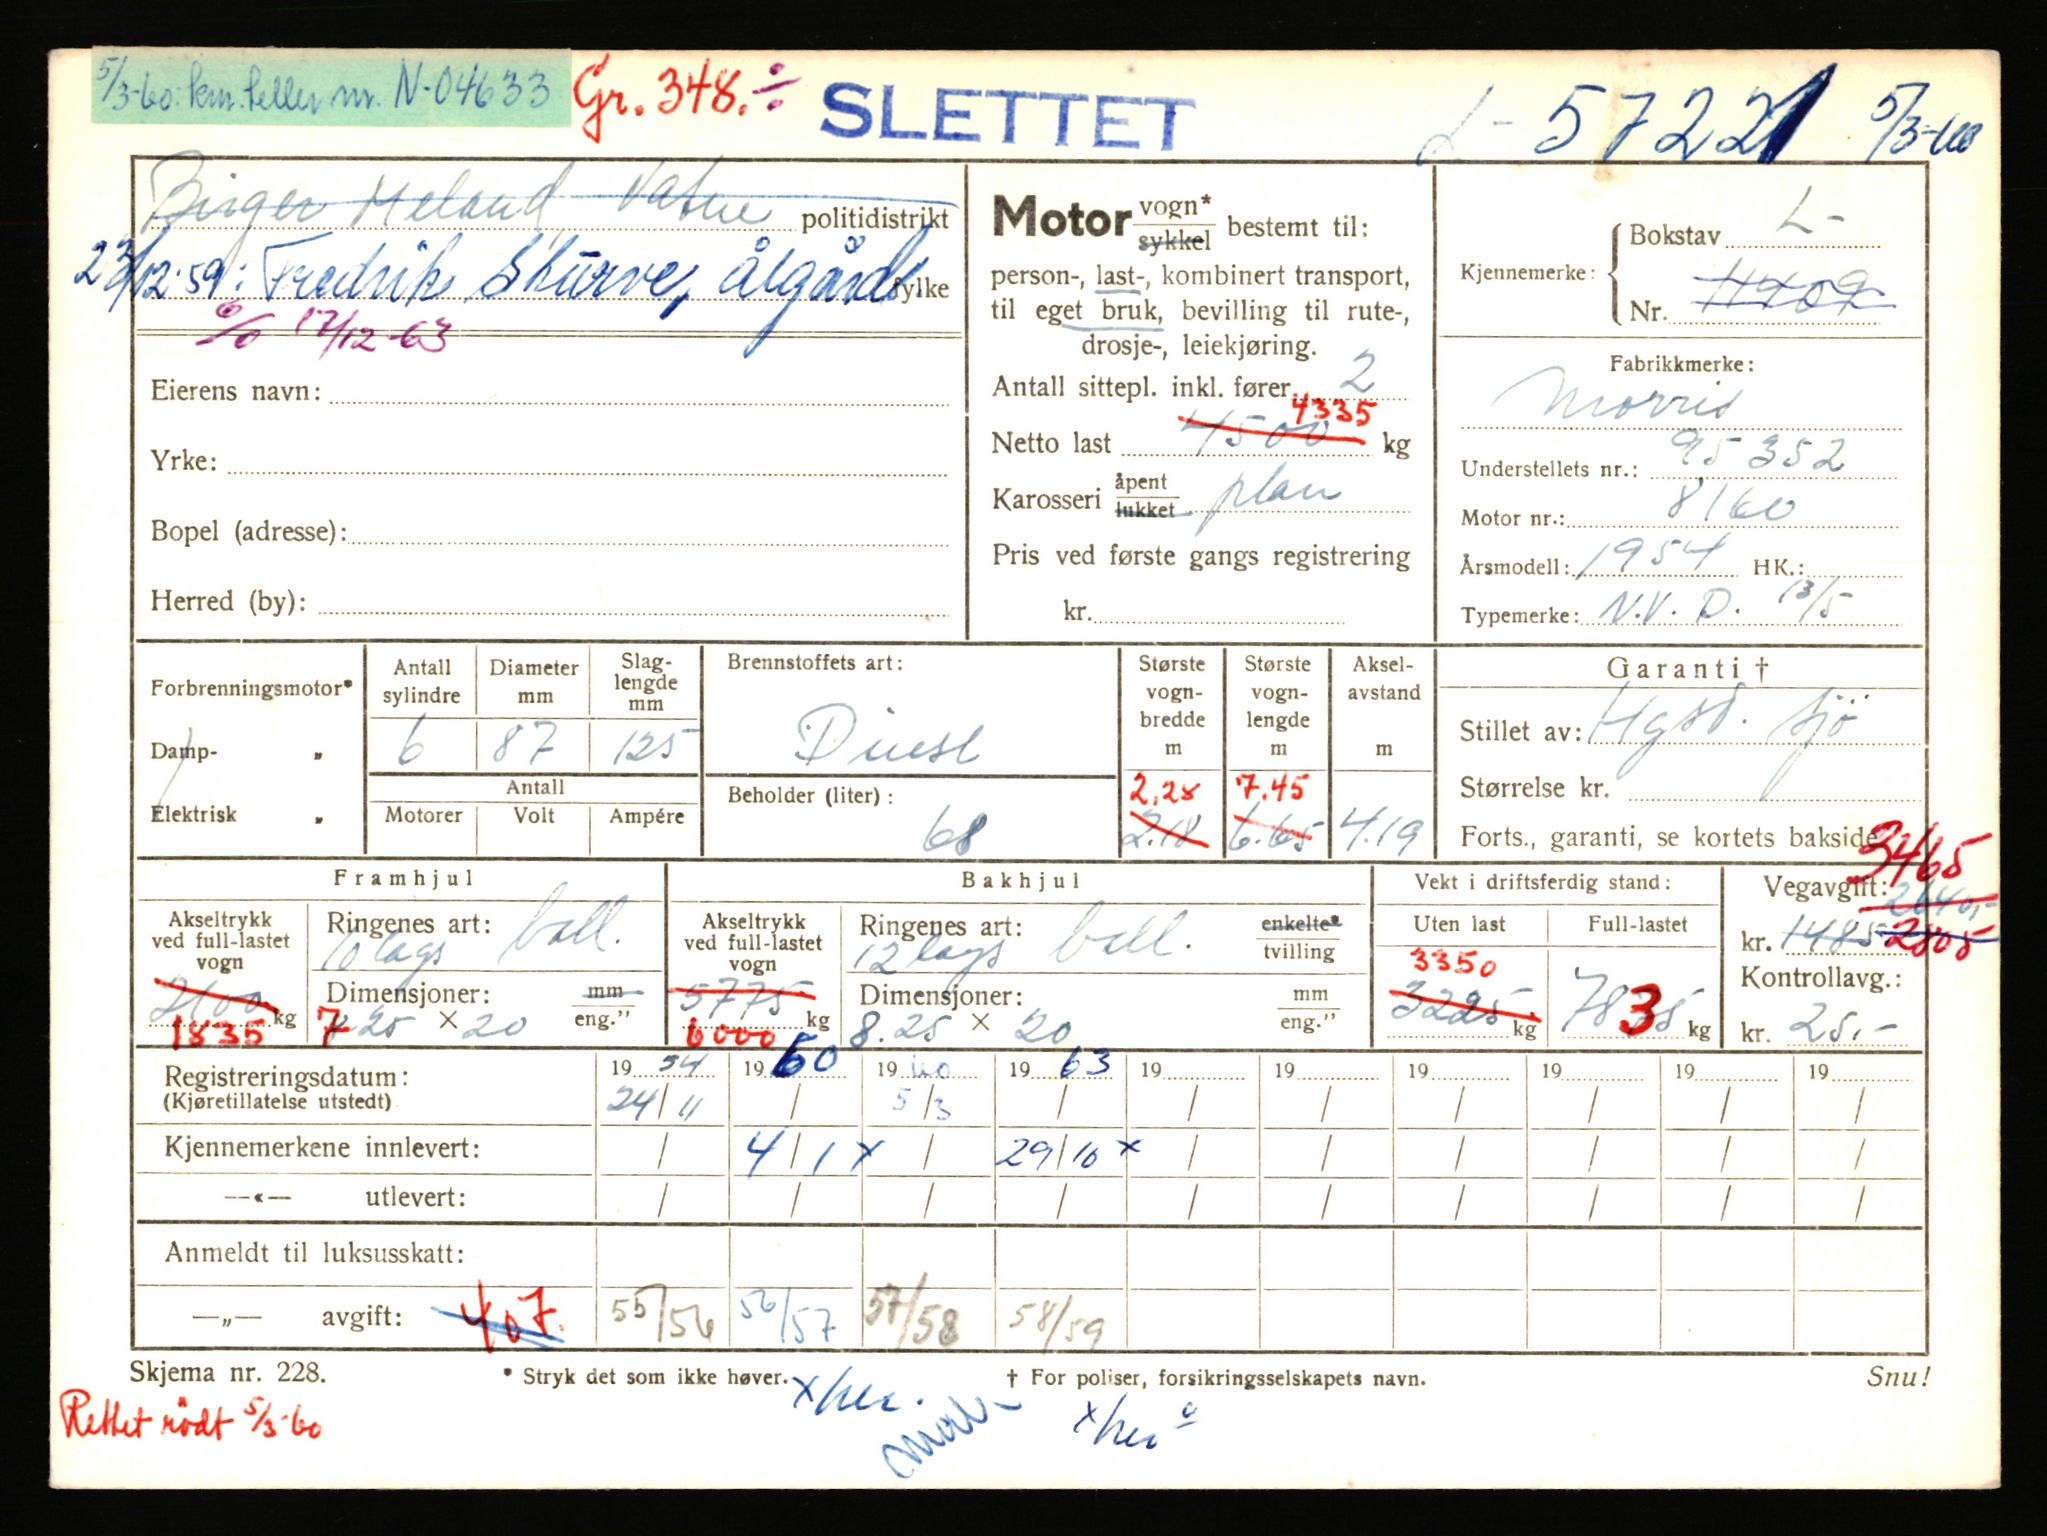 5/3-60: km.teller nr. N-04633
Gr. 348. ÷
SLETTET
L - 57221 5/3-60
Birger Meland Vatne politidistrikt
23/12-59: Fredrik Skurve, Ålgård. fylke
% 17/12-63
Eierens navn:
Yrke:
Bopel (adresse):
Herred (by):
Motor vogn* sykkel bestemt til:
person-, last-, kombinert transport,
til eget bruk, bevilling til rute-,
drosje-, leiekjøring.
Antall sittepl. inkl. fører 2
4335
Netto last 4500 kg
Karosseri åpent lukket plan
Pris ved første gangs registrering
kr.
Kjennemerke: Bokstav L-
Nr.
Fabrikkmerke:
Morris
Understellets nr.: 95352
Motor nr.: 8160
Årsmodell: 1954 HK.:
Typemerke: N.V.D. 13/5
Forbrenningsmotor*
Damp- „
Elektrisk „
Antall sylindre 6
Diameter mm 87
Slag-lengde mm 125
Antall
Motorer Volt Ampére
Brennstoffets art:
Diesl
Beholder (liter):
68
Største vogn-bredde m
2,28
2.18
Største vogn-lengde m
7.45
6.65
Aksel-avstand m
4.19
Garanti †
Stillet av: Hgsd. Sjö
Størrelse kr.
Forts., garanti, se kortets bakside
Framhjul
Akseltrykk ved full-lastet vogn
2100 kg
1835
Ringenes art: 10 lags ball.
Dimensjoner: mm eng."
7.25 × 20
Bakhjul
Akseltrykk ved full-lastet vogn
5775 kg
6000
Ringenes art: enkelte* tvilling
12 lags ball.
Dimensjoner: mm eng."
8.25 × 20
Vekt i driftsferdig stand:
Uten last Full-lastet
3350
3225 kg 7835 kg
3465
Vegavgift: 2640,-
kr. 1485 2805
Kontrollavg.:
kr. 25.-
Registreringsdatum: 19 54 19 60 19 60 19 63 19 19 19 19 19 19
(Kjøretillatelse utstedt) 24/11 / 5/3 / / / / / / /
Kjennemerkene innlevert: / 4/1 x / 29/10 x / / / / / /
—«— utlevert: / / / / / / / / / /
Anmeldt til luksusskatt:
—„— avgift: 407. 55/56 56/57 57/58 58/59
Skjema nr. 228.
* Stryk det som ikke høver.
† For poliser, forsikringsselskapets navn.
Snu!
x her.
x her
Rettet rødt 5/3-60